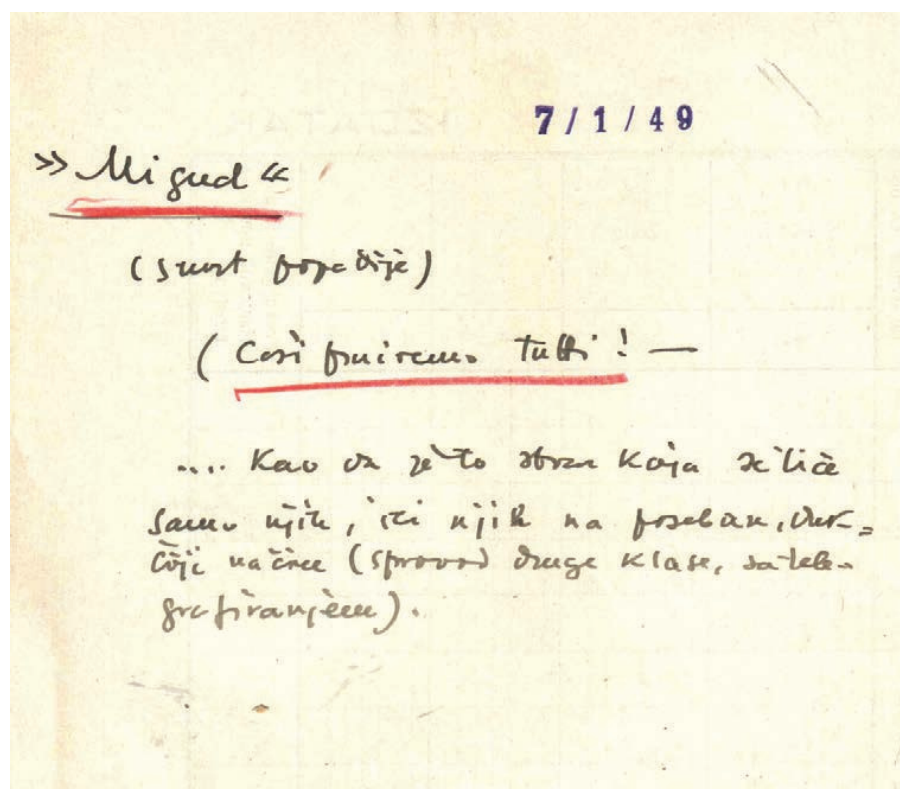 7/1/49
»Migud«
(smrt popadije)
(Così finiremo tutti! —
.... Kao da je to stvar koja se tiče
samo njih, ili njih na poseban, druk=
čiji način (sprovod druge klase, sa tele-
grafiranjem).